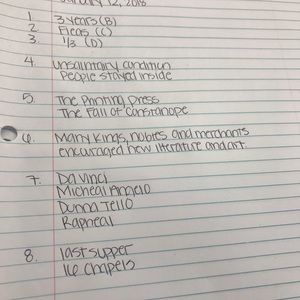 January 12, 2018
1. 3 years (B)
2. Fleas (C)
3. 1/3 (D)
4. unsanitairy condition
People stayed inside
5. The Printing Press
The Fall of Constanople
6. Many kings, nobles and merchants
encouraged new literature and art.
7. Da Vinci
Micheal Angelo
Donna Tello
Rapheal
8. last supper
16 chapels